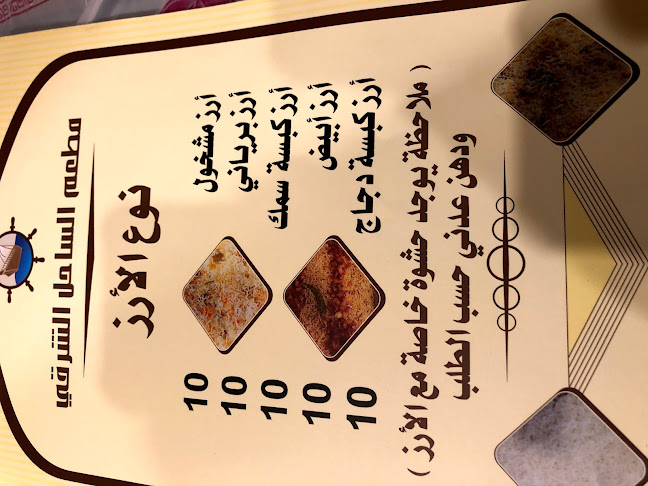 مطعم الساحل الشرقي
نوع الأرز
أرز مشخول 10
أرز برياني 10
أرز كبسة سمك 10
أرز أبيض 10
أرز كبسة دجاج 10
( ملاحظة يوجد حشوة خاصة مع الأرز )
ودهن عدني حسب الطلب